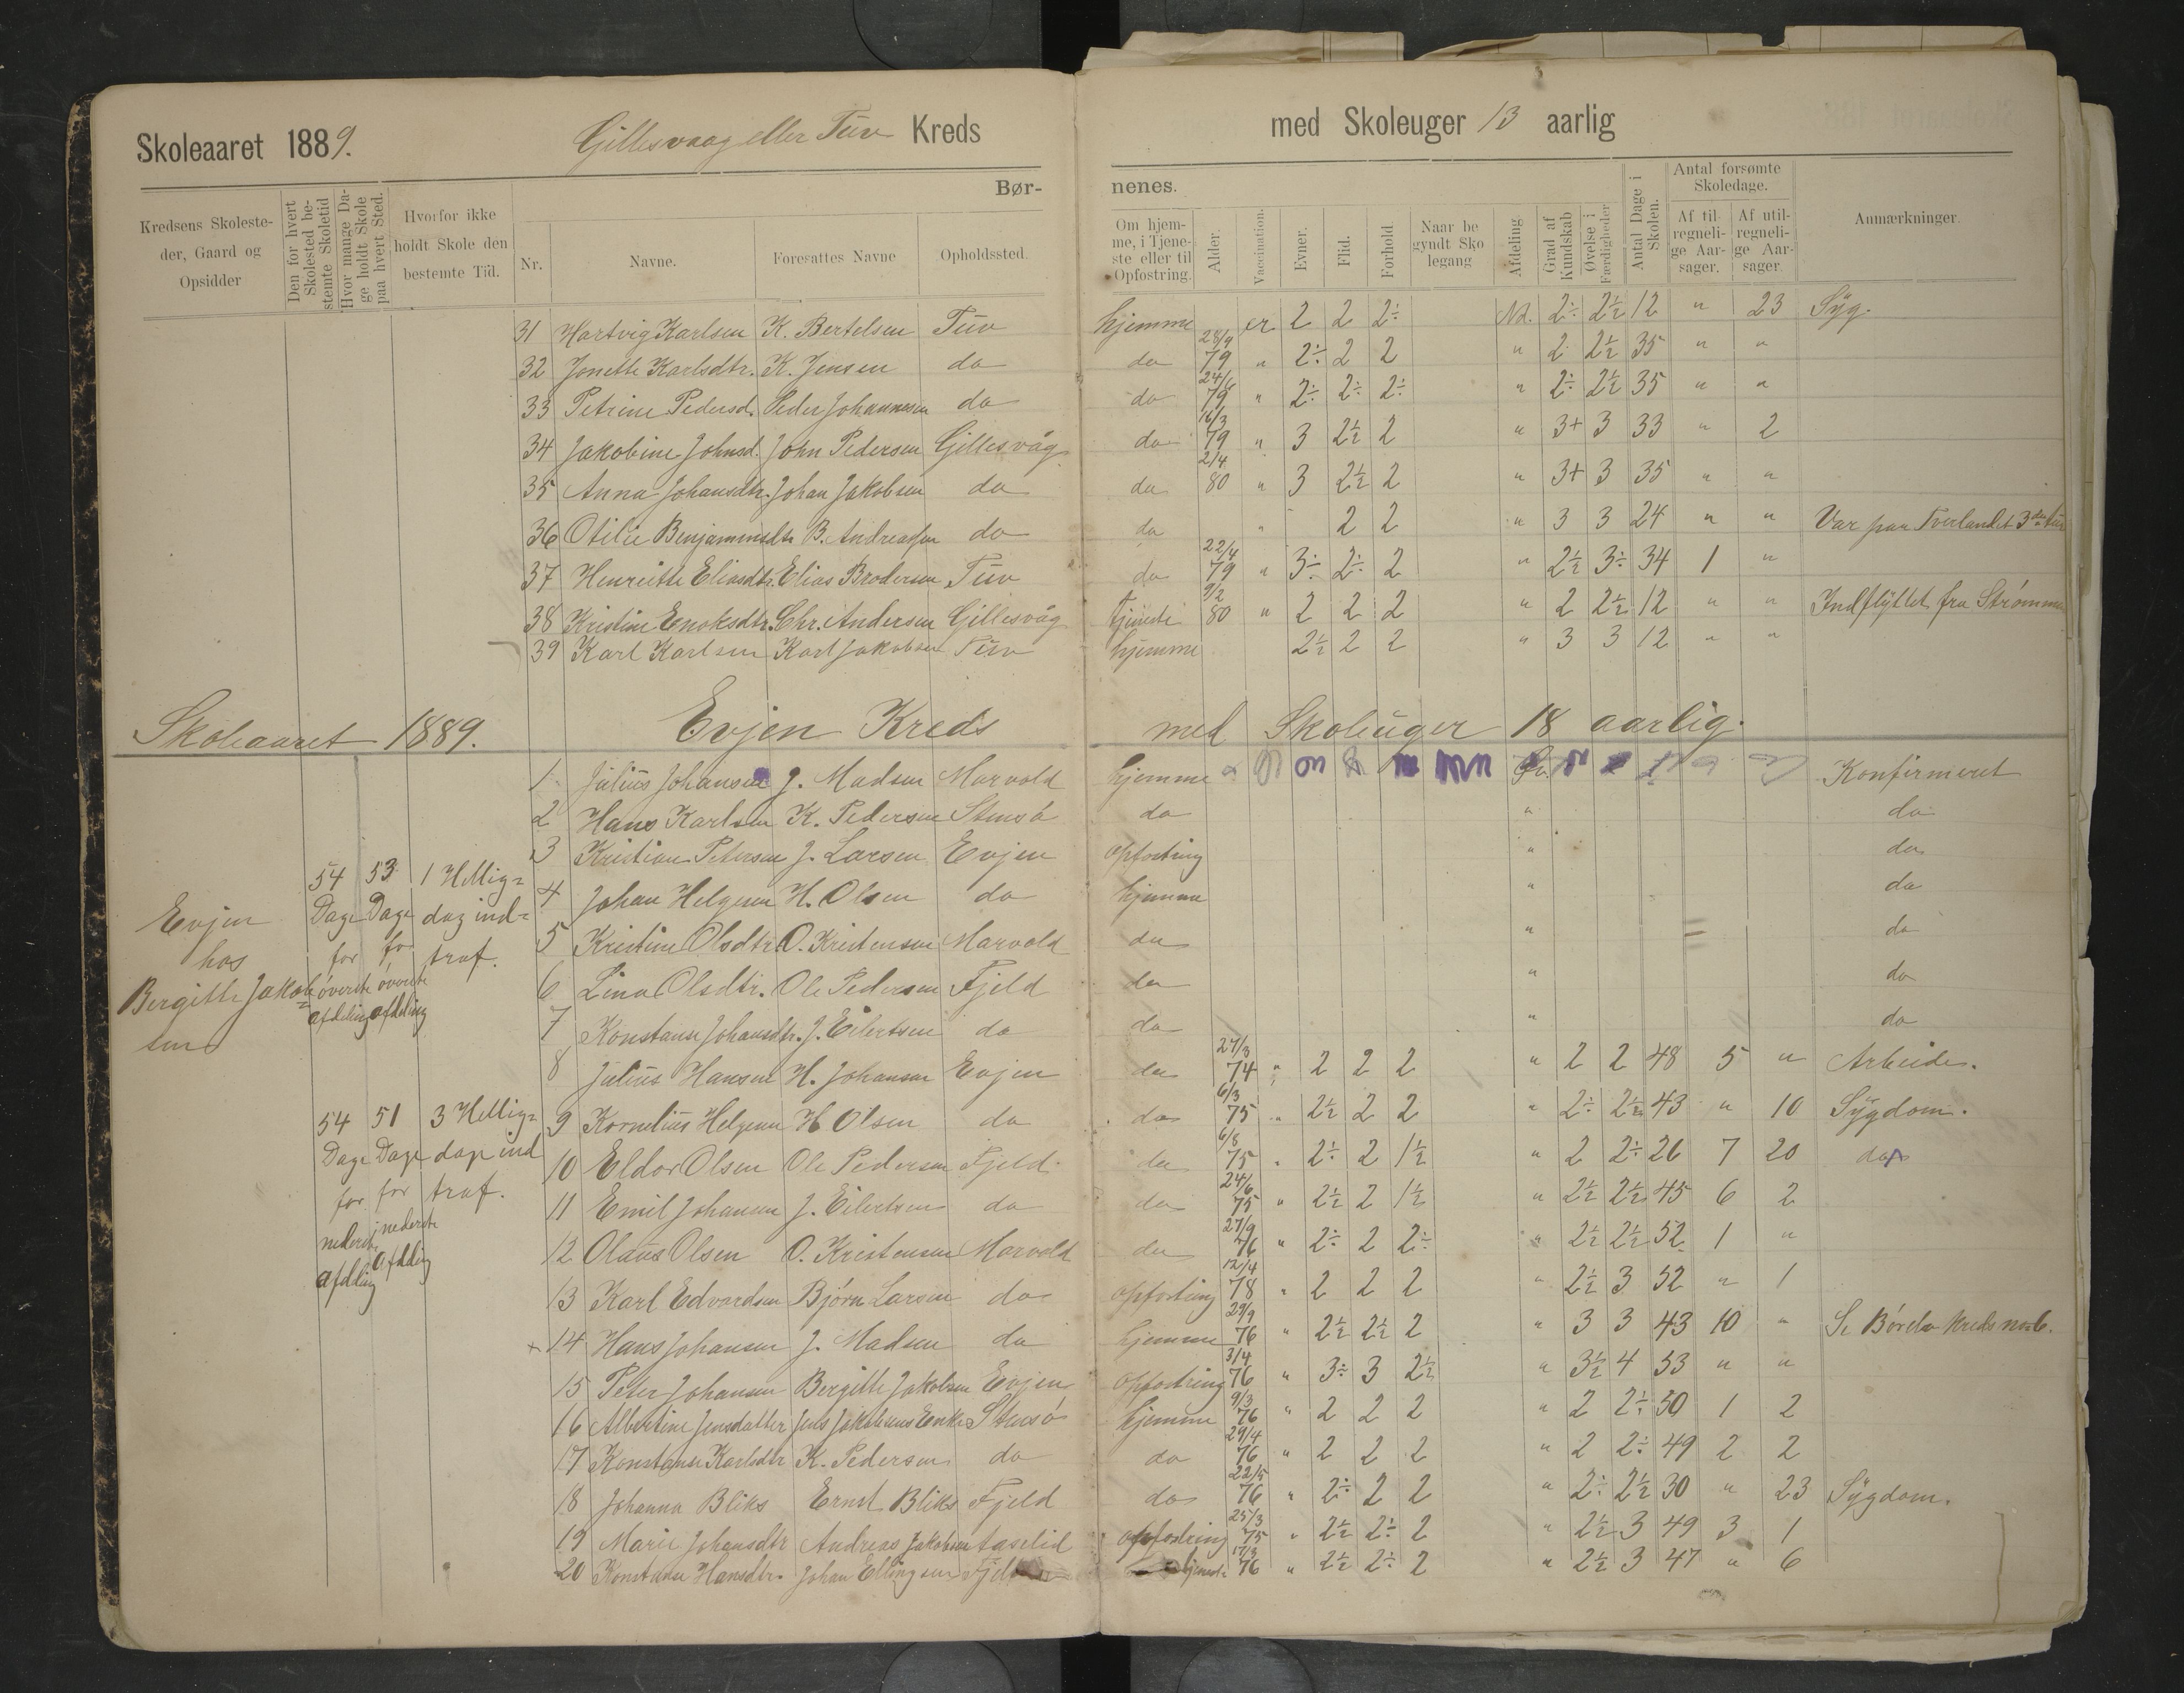 Skoleaaret 1889.
Gillesvaag eller Tüv Kreds
med Skoleuger 13 aarlig
Børnenes.
Kredsens Skolesteder, Gaard og Opsidder
Den for hvert Skolested bestemte Skoletid
Hvor mange Dage holdt Skole paa hvert Sted.
Hvorfor ikke holdt Skole den bestemte Tid.
Nr.
Navne.
Foresattes Navne
Opholdssted.
Om hjemme, i Tjeneste eller til Opfostring.
Alder.
Vaccination.
Evner.
Flid.
Forhold
Naar begyndt Skolegang
Afdeling
Grad af Kundskab
Øvelse i Færdigheder
Antal Dage i Skolen.
Antal forsømte Skoledage.
Af tilregnelige Aarsager.
Af utilregnelige Aarsager.
Anmærkninger.
31 Hartvig Karlsen K. Bertelsen Tüv hjemme er 2 2 2÷ Nd. 2÷ 2½ 12 " 23 Syg.
32 Jonette Karlsdtr. K. Jensen do do 28/4 79 " 2÷ 2 2 " 2 2½ 35 " "
33 Petrine Pedersd. Peder Johannesen do do 24/6 79 " 2÷ 2÷ 2÷ " 2÷ 2½ 35 " "
34 Jakobine Johnsd. John Pedersen Gillesvåg do 16/3 79 " 3 2½ 2 " 3+ 3 33 " 2
35 Anna Johansdtr. Johan Jakobsen do do 2/4 80 " 3 2½ 2 " 3+ 3 35 " "
36 Otilie Benjaminsdtr B. Andreassen do do " 2 2 " 3 3 24 " " Var paa Tverlandet 3die
37 Henreitte Eliasdtr. Elias Brodersen Tüv do 22/4 79 " 3÷ 2÷ 2 " 2½ 3÷ 34 1 "
38 Kristine Enoksdtr. Chr. Andersen Gillesvåg tjeneste 9/2 80 " 2 2 2 " 2 2½ 12 " " Indflyttet fra Strømmen
39 Karl Karlsen Karl Jakobsen Tüv hjemme 2½ 2 2 " 3 3 12 " "
Skoleaaret 1889. Evjen Kreds med Skoleuger 18 aarlig.
1 Julius Johansen J. Madsen Marvold hjemme Øv. Konfirmeret
2 Hans Karlsen K. Pedersen Stensö do " do
3 Kristian Petersen J. Larsen Evjen opfostring " do
4 Johan Helgesen H. Olsen do hjemme " do
5 Kristine Olsdtr. O. Kristensen Marvold do " do
6 Lina Olsdtr. Ole Pedersen Fjeld do " do
7 Konstanse Johansdtr. J. Eilertsen do do " do
8 Julius Hansen H. Johansen Evjen do 27/3 74 " 2 2 2 " 2 2 48 5 " Arbeide.
9 Kornelius Helgesen H Olsen do do 6/3 75 " 2½ 2 2 " 2÷ 2½ 43 " 10 Sygdom.
10 Eldor Olsen Ole Pedersen Fjeld do 6/8 75 " 2÷ 2 1½ " 2 2÷ 26 7 20 do
11 Emil Johansen J. Eilertsen do do 24/6 75 " 2½ 2 1½ " 2½ 2½ 45 6 2
12 Olaus Olsen O. Kristensen Marvold do 27/9 76 " 2÷ 2 2÷ " 2½ 2½ 52 1 "
13 Karl Edvardsen Bjørn Larsen do opfostring 12/4 78 " 2 2 2 " 2½ 3 52 " 1
+ 14 Hans Johansen J. Madsen do hjemme 29/9 76 " 2½ 2½ 2 " 3 3 43 10 " Se kreds
15 Peter Johansen Bergitte Jakobsen Evjen opfostring 3/4 76 " 3÷ 3 2½ " 3½ 4 53 " "
16 Albertine Jensdatter Jens Jakobsens Enke Stensö hjemme 9/3 76 " 2 2 2 " 2 2÷ 50 1 2
17 Konstanse Karlsdtr K. Pedersen do do 29/4 76 " 2 2 2 " 2 2÷ 49 2 2
18 Johanna Bliks Ernst Bliks Fjeld do 22/5 76 " 2÷ 2 2 " 2÷ 2½ 30 " 23 Sygdom.
19 Marie Johansdtr Andreas Jakobsen Aaselid opfostring 25/3 75 " 2½ 2÷ 2 " 2½ 3 49 3 1
20 Konstanse Hansdtr. Johan Ellingsen Fjeld tjeneste 17/3 76 " 2½ 2÷ 2 " 2½ 3 47 " 6
Evjen
hos
Bergitte Jakob=
sen
54 Dage for överste afdeling
53 Dage for överste afdeling
1 Hellig=
dag ind=
traf.
54 Dage for nederste afdeling
51 Dage for nederste afdeling
3 Hellig=
dage ind
traf.